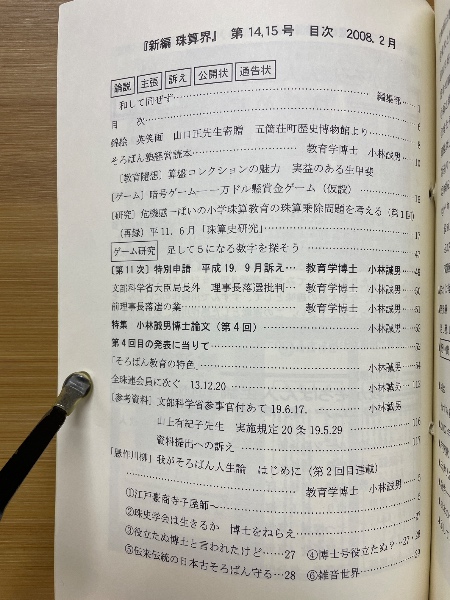 『新編 珠算界』 第14,15号 目次 2008.2月
論説 主張 訴え 公開状 通告状
和して同ぜず……編集部…1
目 次……6
錦絵 英笑画 山口正先生寄贈 五箇荘町歴史博物館より……8
そろばん塾経営読本……教育学博士 小林誠男…10
〔教育随感〕算盛コンクションの魅力 実益のある生甲斐
〔ゲーム〕暗号ゲーム―一万ドル懸賞金ゲーム(仮設)……16
〔研究〕危機感っぱいの小学珠算教育の珠算乗除問題を考える(第1回)
(再録)平11.6月「珠算史研究」……17
ゲーム研究 足して5になる数字を探そう……47
〔第11次〕特別申請 平成19.9月訴え… 教育学博士 小林誠男…48
文部科学省大臣局長外 理事長落選批判… 教育学博士 小林誠男…
前理事長落選の業…… 教育学博士 小林誠男…
特集 小林誠男博士論文(第4回)……小林誠男…
第4回目の発表に当りて……
「そろばん教育の特色」……小林誠男…
全珠連会員に次ぐ 13.12.20……小林誠男…
〔参考資料〕文部科学省参事官付あて 19.6.17. 小林誠男
山上有紀子先生 実施規定20条 19.5.29……116
資料提出への訴え……117
「懸作川柳」我がそろばん人生論 はじめに(第2回目連載)
……教育学博士 小林誠男…
①江戸
②珠史学会は生きるか 博士をねらえ……
③役立たぬ博士と言われたけど……27 ④博士号役立たぬ?…28
⑤伝来伝統の日本古そろばん守る…28 ⑥雑音世界……